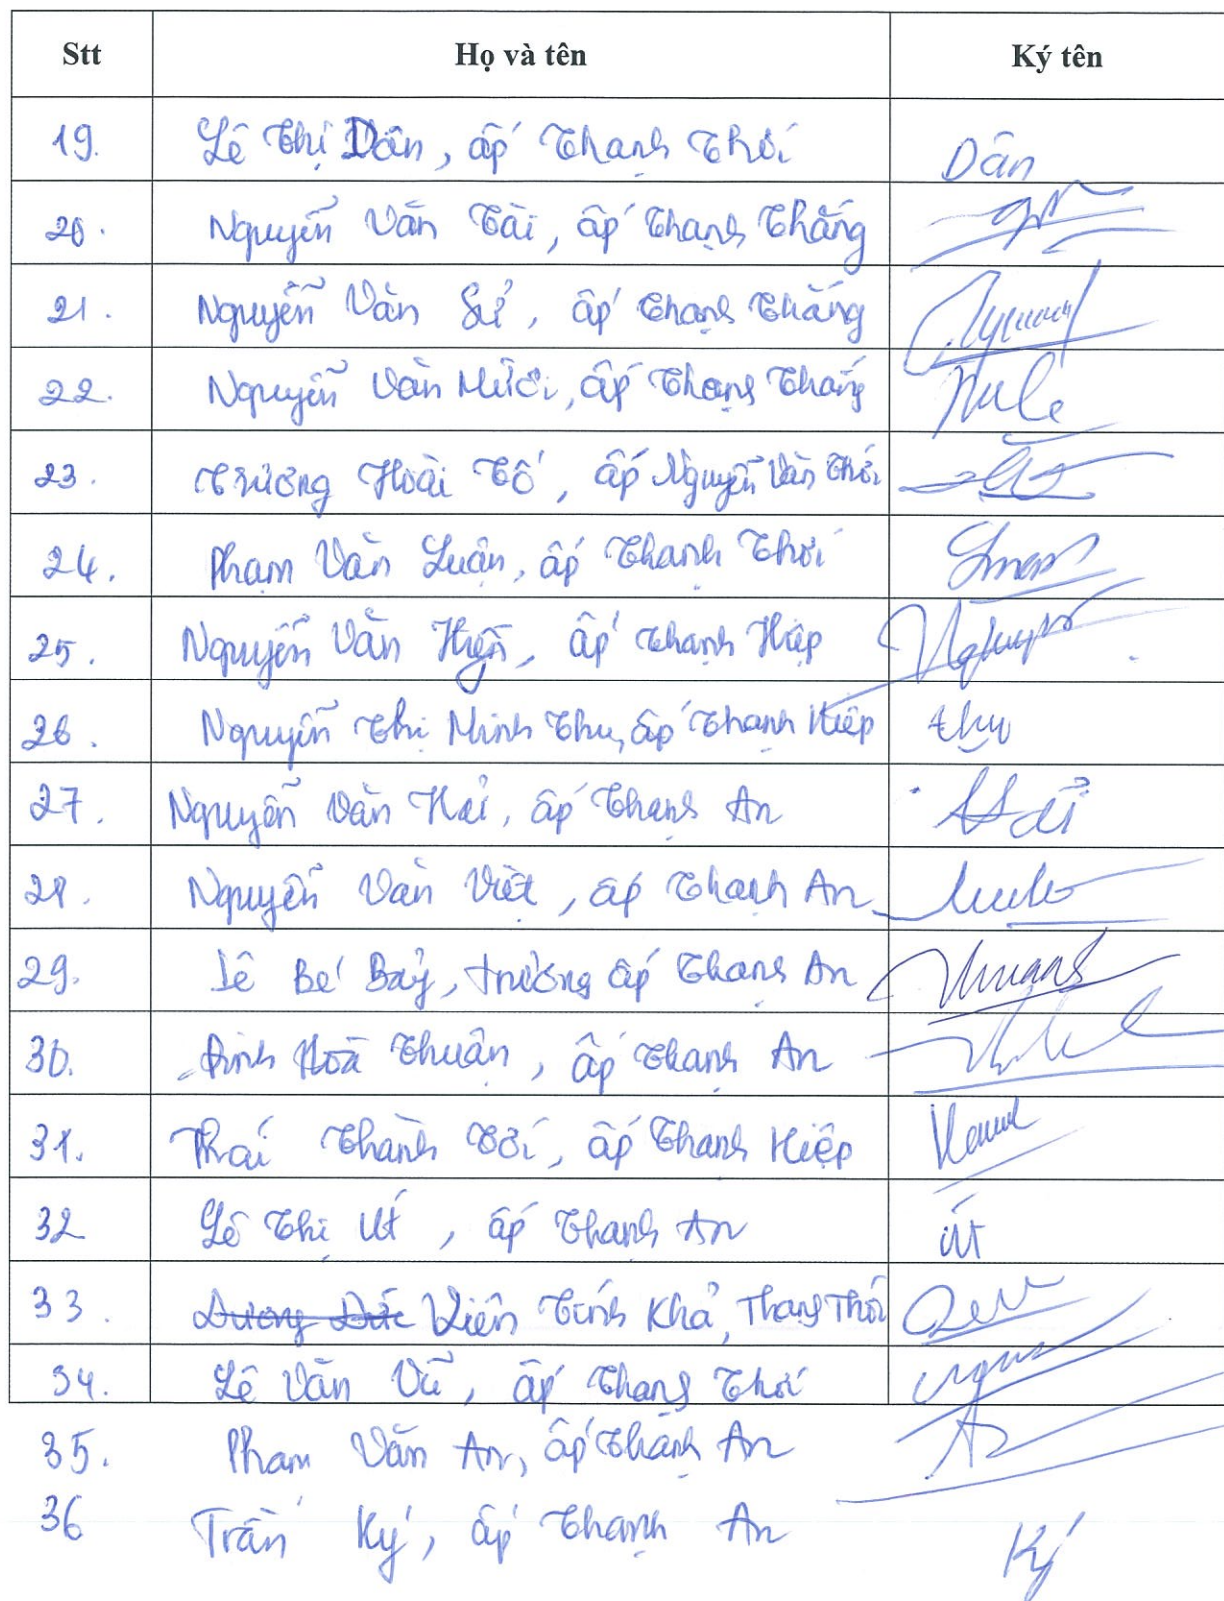 Stt Họ và tên Ký tên
19. Lê Thị Dân, ấp Thạnh Thới Dân
20. Nguyễn Văn Tài, ấp Thạnh Thắng
21. Nguyễn Văn Sử, ấp Thạnh Thắng
22. Nguyễn Văn Mười, ấp Thạnh Thắng
23. Trương Hoài Tố, ấp Nguyễn Văn Thới
24. Phạm Văn Luận, ấp Thạnh Thới
25. Nguyễn Văn Hiền, ấp Thạnh Hiệp
26. Nguyễn Thị Minh Thu, ấp Thạnh Hiệp thu
27. Nguyễn Văn Hải, ấp Thạnh An Hải
28. Nguyễn Văn Việt, ấp Thạnh An
29. Lê Bé Bảy, trưởng ấp Thạnh An
30. Đinh Hoà Thuận, ấp Thạnh An
31. Thái Thành Tới, ấp Thạnh Hiệp
32 Lê Thị Út, ấp Thạnh An út
33. Dương Đức Viên Tính Khả, Thạnh Thới
34. Lê Văn Vũ, ấp Thạnh Thới
35. Phạm Văn An, ấp Thạnh An
36 Trần Ký, ấp Thạnh An Ký